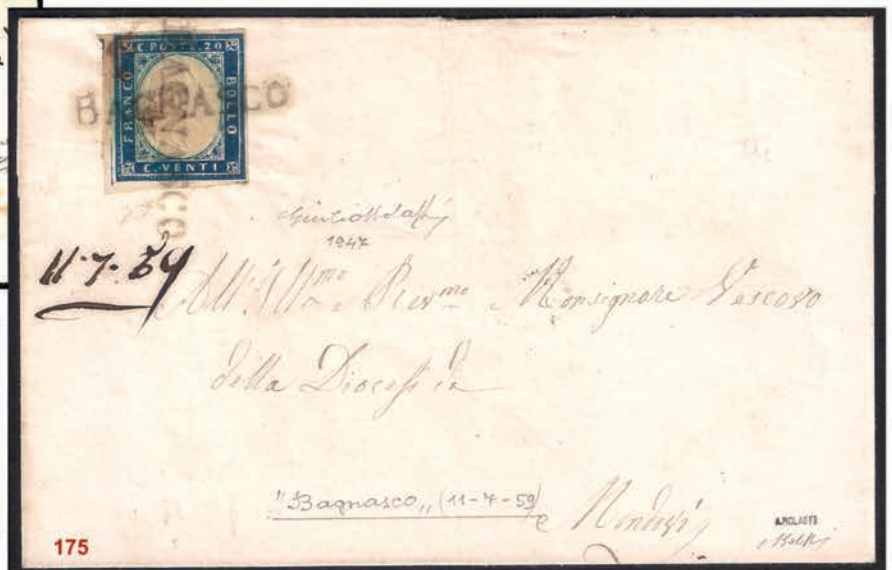 C. POSTE. 20
FRANCO
BOLLO
C. VENTI
BAGNASCO
BAGNASCO
1947
11·7·59
All'Ill.mo e Rev.mo Monsignore Vescovo
della Diocesi di
"Bagnasco„ (11-7-59)
e Mondovì
175